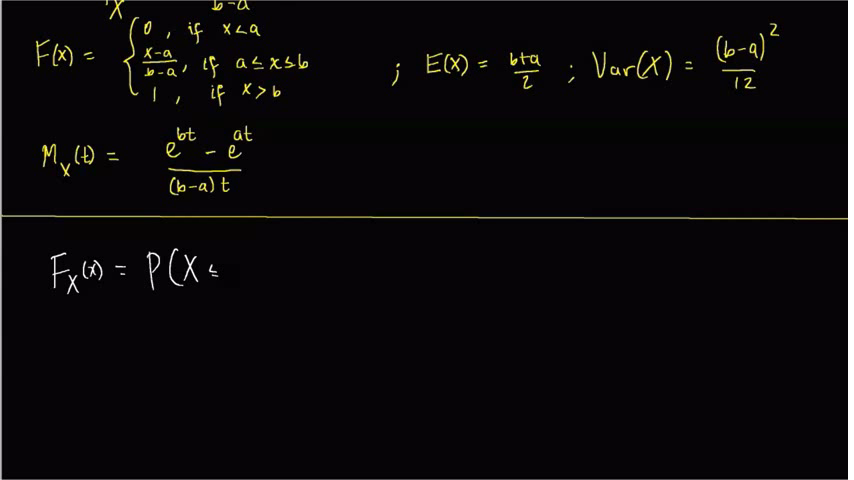 X b-a
F(x) = { 0, if x<a
x-a/b-a, if a≤x≤b ; E(X) = b+a/2 ; Var(X) = (b-a)²/12
1, if x>b
M_X(t) = e^{bt} - e^{at} / (b-a)t
F_X(x) = P(X ≤